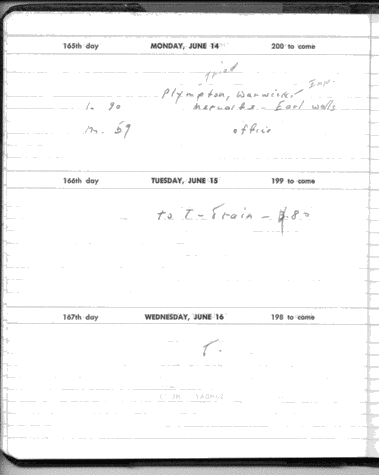 165th day MONDAY, JUNE 14 200 to come
Plympton, Warwick Imp.
L. 90 Mercato - Earl Wells
M. 59 office
166th day TUESDAY, JUNE 15 199 to come
to T - Train - 80
167th day WEDNESDAY, JUNE 16 198 to come
T.